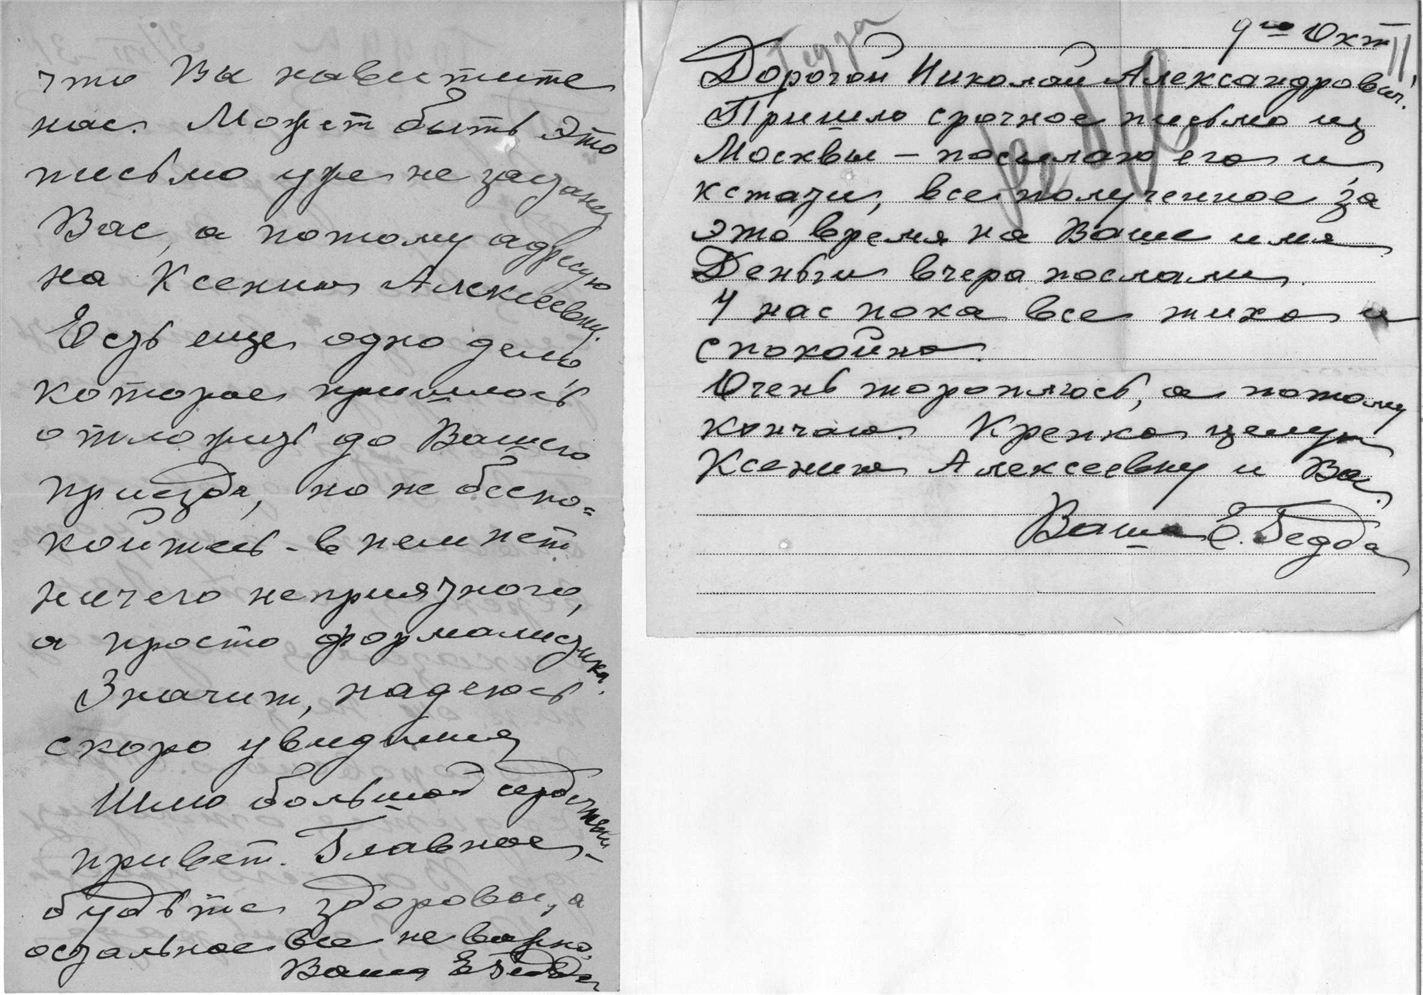 что Вы навестите
нас. Может быть это
письмо уже не застанет
Вас, а потому адресую
на Ксению Алексеевну.
Есть еще одно дело,
которое пришлось
отложить до Вашего
приезда, но не беспо-
койтесь - в нем нет
ничего неприятного,
а просто формалистика.
Значит, надеюсь
скоро увидимся
Шлю большой сердечный
привет. Главное -
будьте здоровы, а
остальное все не важно,
Ваша Е Гедда
Гедда
9го Окт
Дорогой Николай Александрович!
Пришло срочное письмо из
Москвы - посылаю его и
кстати, все полученное за
это время на Ваше имя
Деньги вчера послали.
У нас пока все тихо и
спокойно.
Очень тороплюсь, а потому
кончаю. Крепко целую
Ксению Алексеевну и Вас.
Ваша Е. Гедда